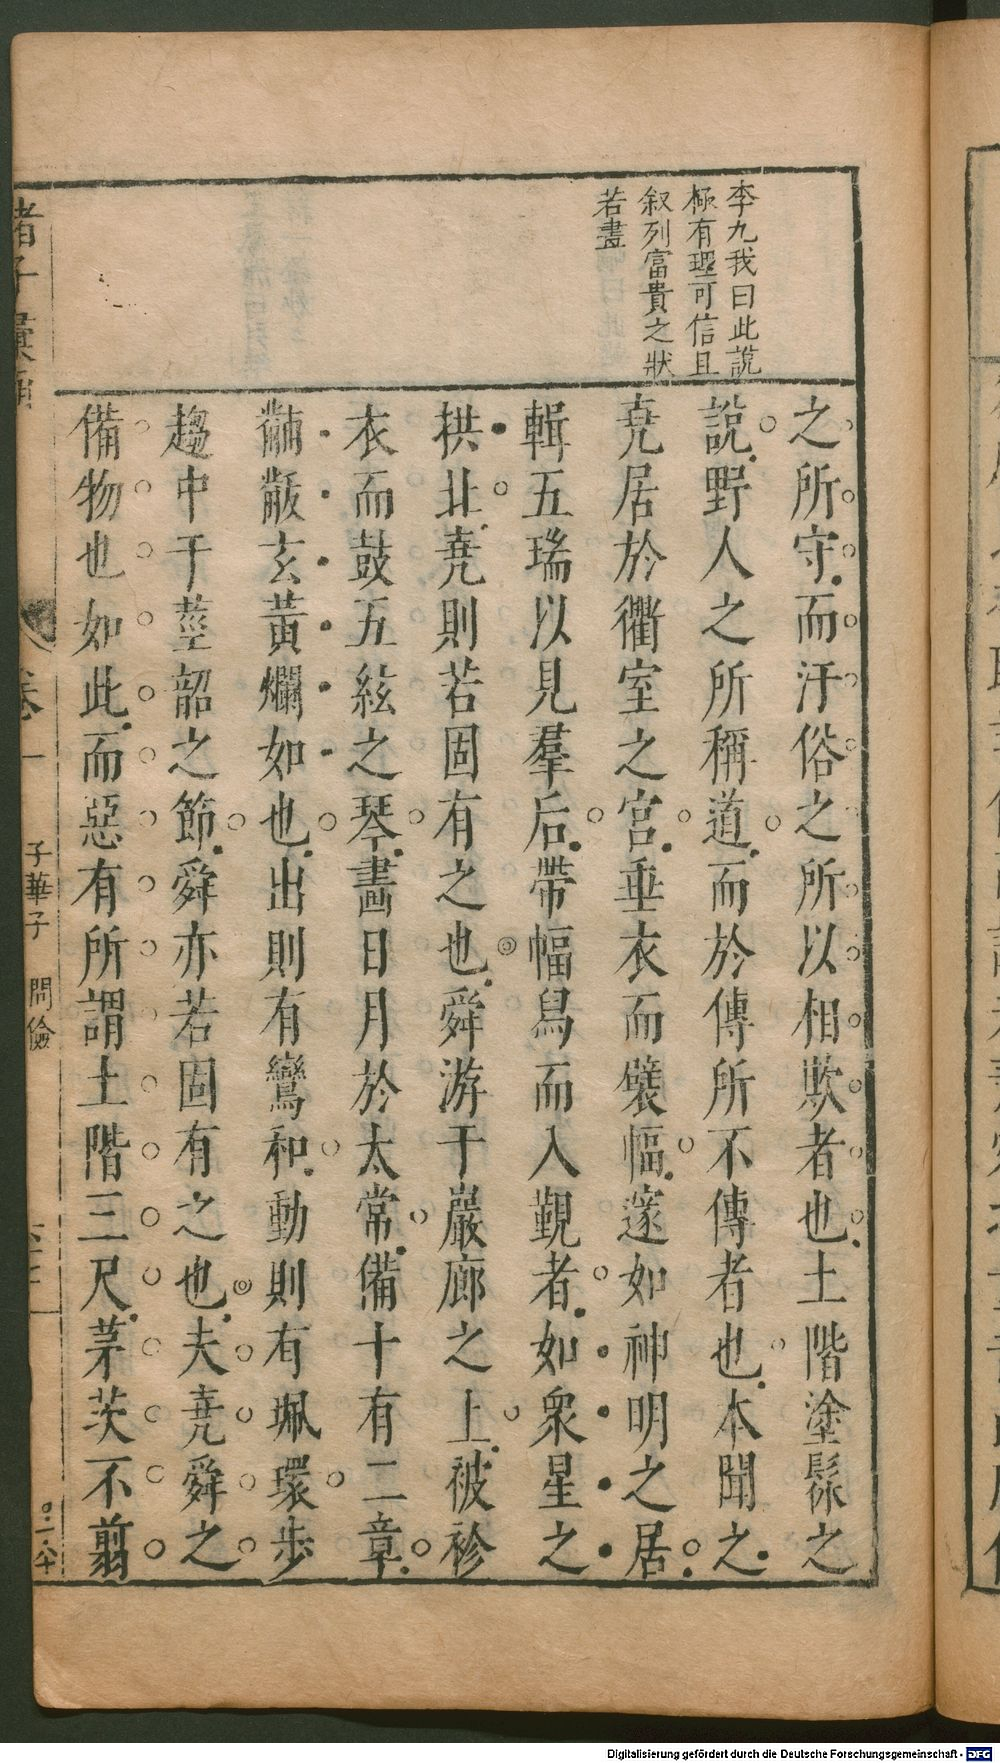 李九我曰此說
極有理可信且
叙列富貴之狀
若畫
之所守而汙俗之所以相欺者也土階塗髹之
說野人之所稱道而於傳所不傳者也本聞之
堯居於衢室之宮垂衣而襞幅邃如神明之居
輯五瑞以見羣后帶幅舄而入覲者如衆星之
拱北堯則若固有之也舜游于巖廊之上被袗
衣而鼓五絃之琴畫日月於太常備十有二章
黼黻玄黃爛如也出則有鸞和動則有珮環步
趨中于莖韶之節舜亦若固有之也夫堯舜之
備物也如此而惡有所謂土階三尺茅茨不翦
諸子彙函
卷一
子華子
問儉
Digitalisierung gefördert durch die Deutsche Forschungsgemeinschaft - DFG